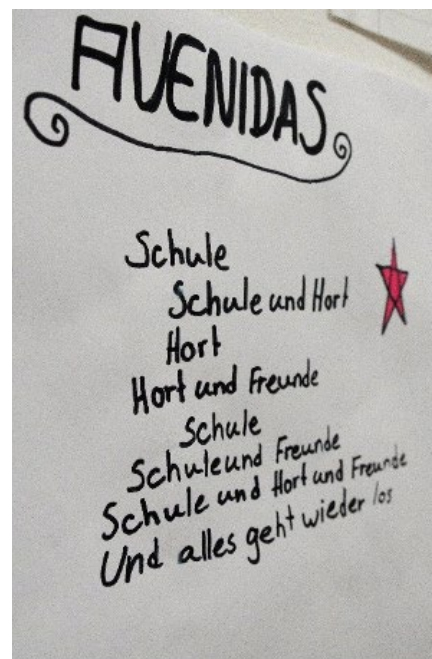 AVENIDAS
Schule
Schule und Hort
Hort
Hort und Freunde
Schule
Schule und Freunde
Schule und Hort und Freunde
Und alles geht wieder los